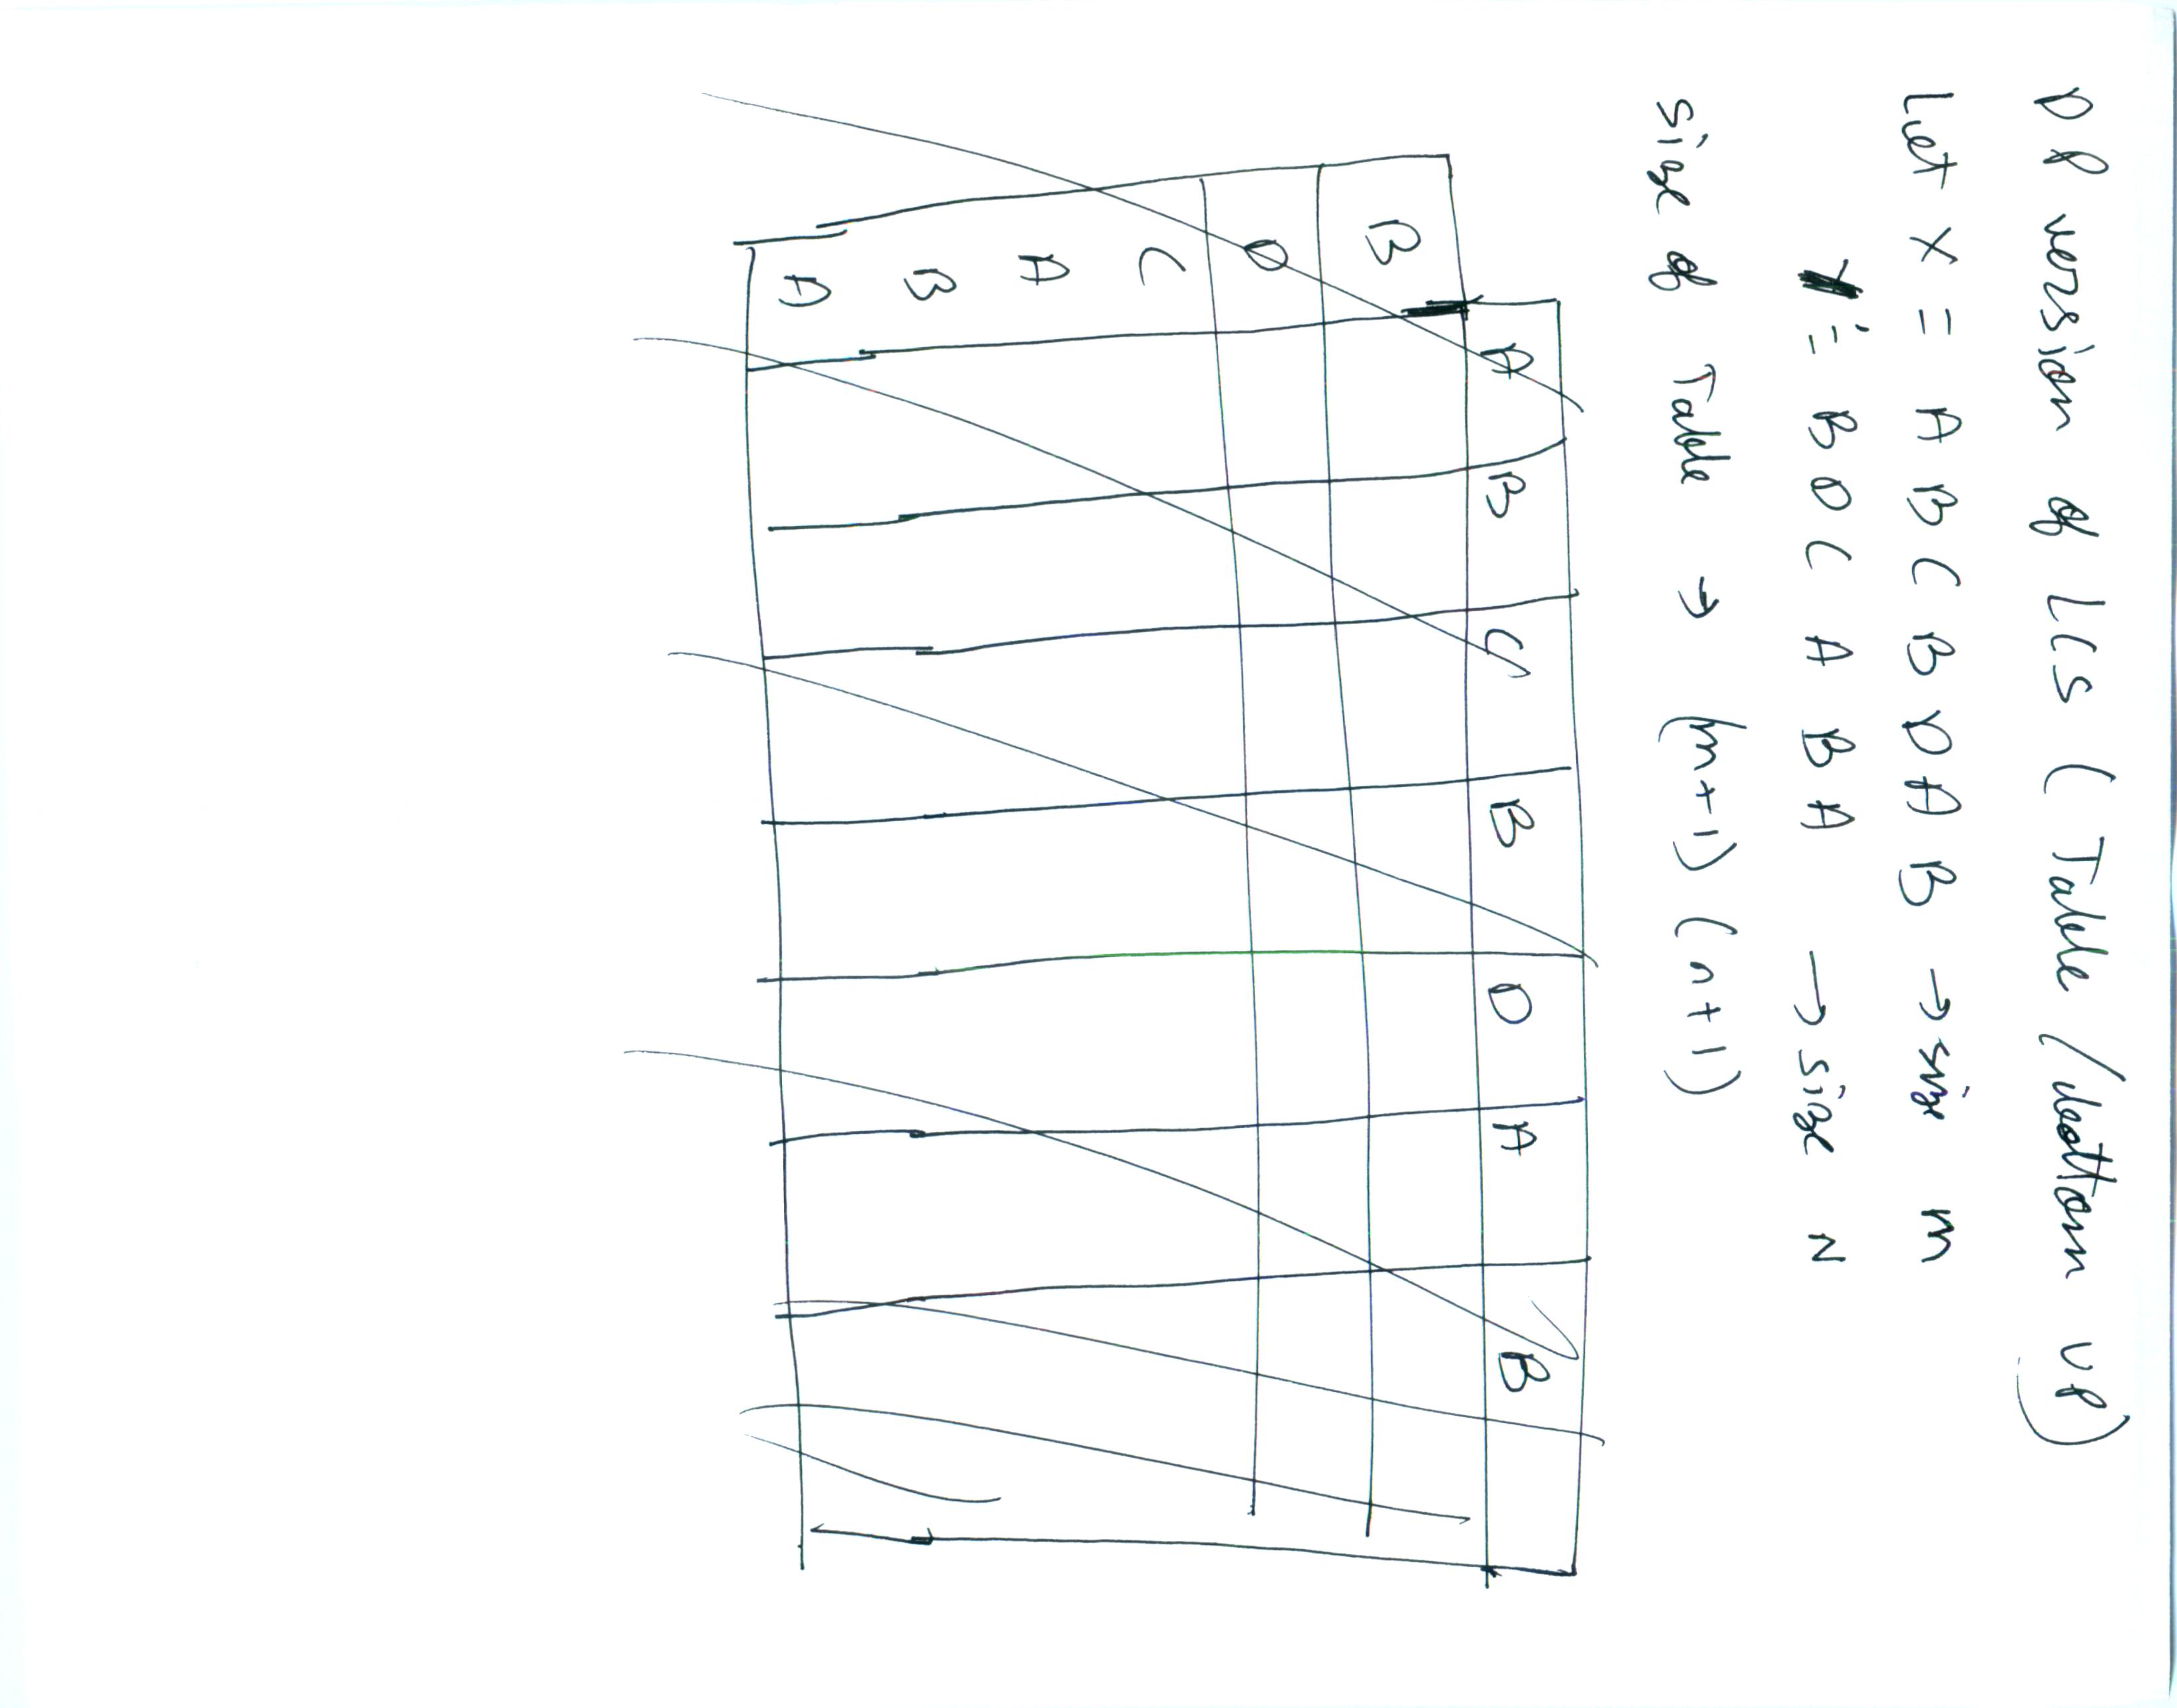 DP version of LCS (Table / bottom up)
Let X = A B C B D A B → size m
Y = B D C A B A → size N
size of Table → (m+1) (n+1)
A B C B D A B
B
D
C
A
B
A